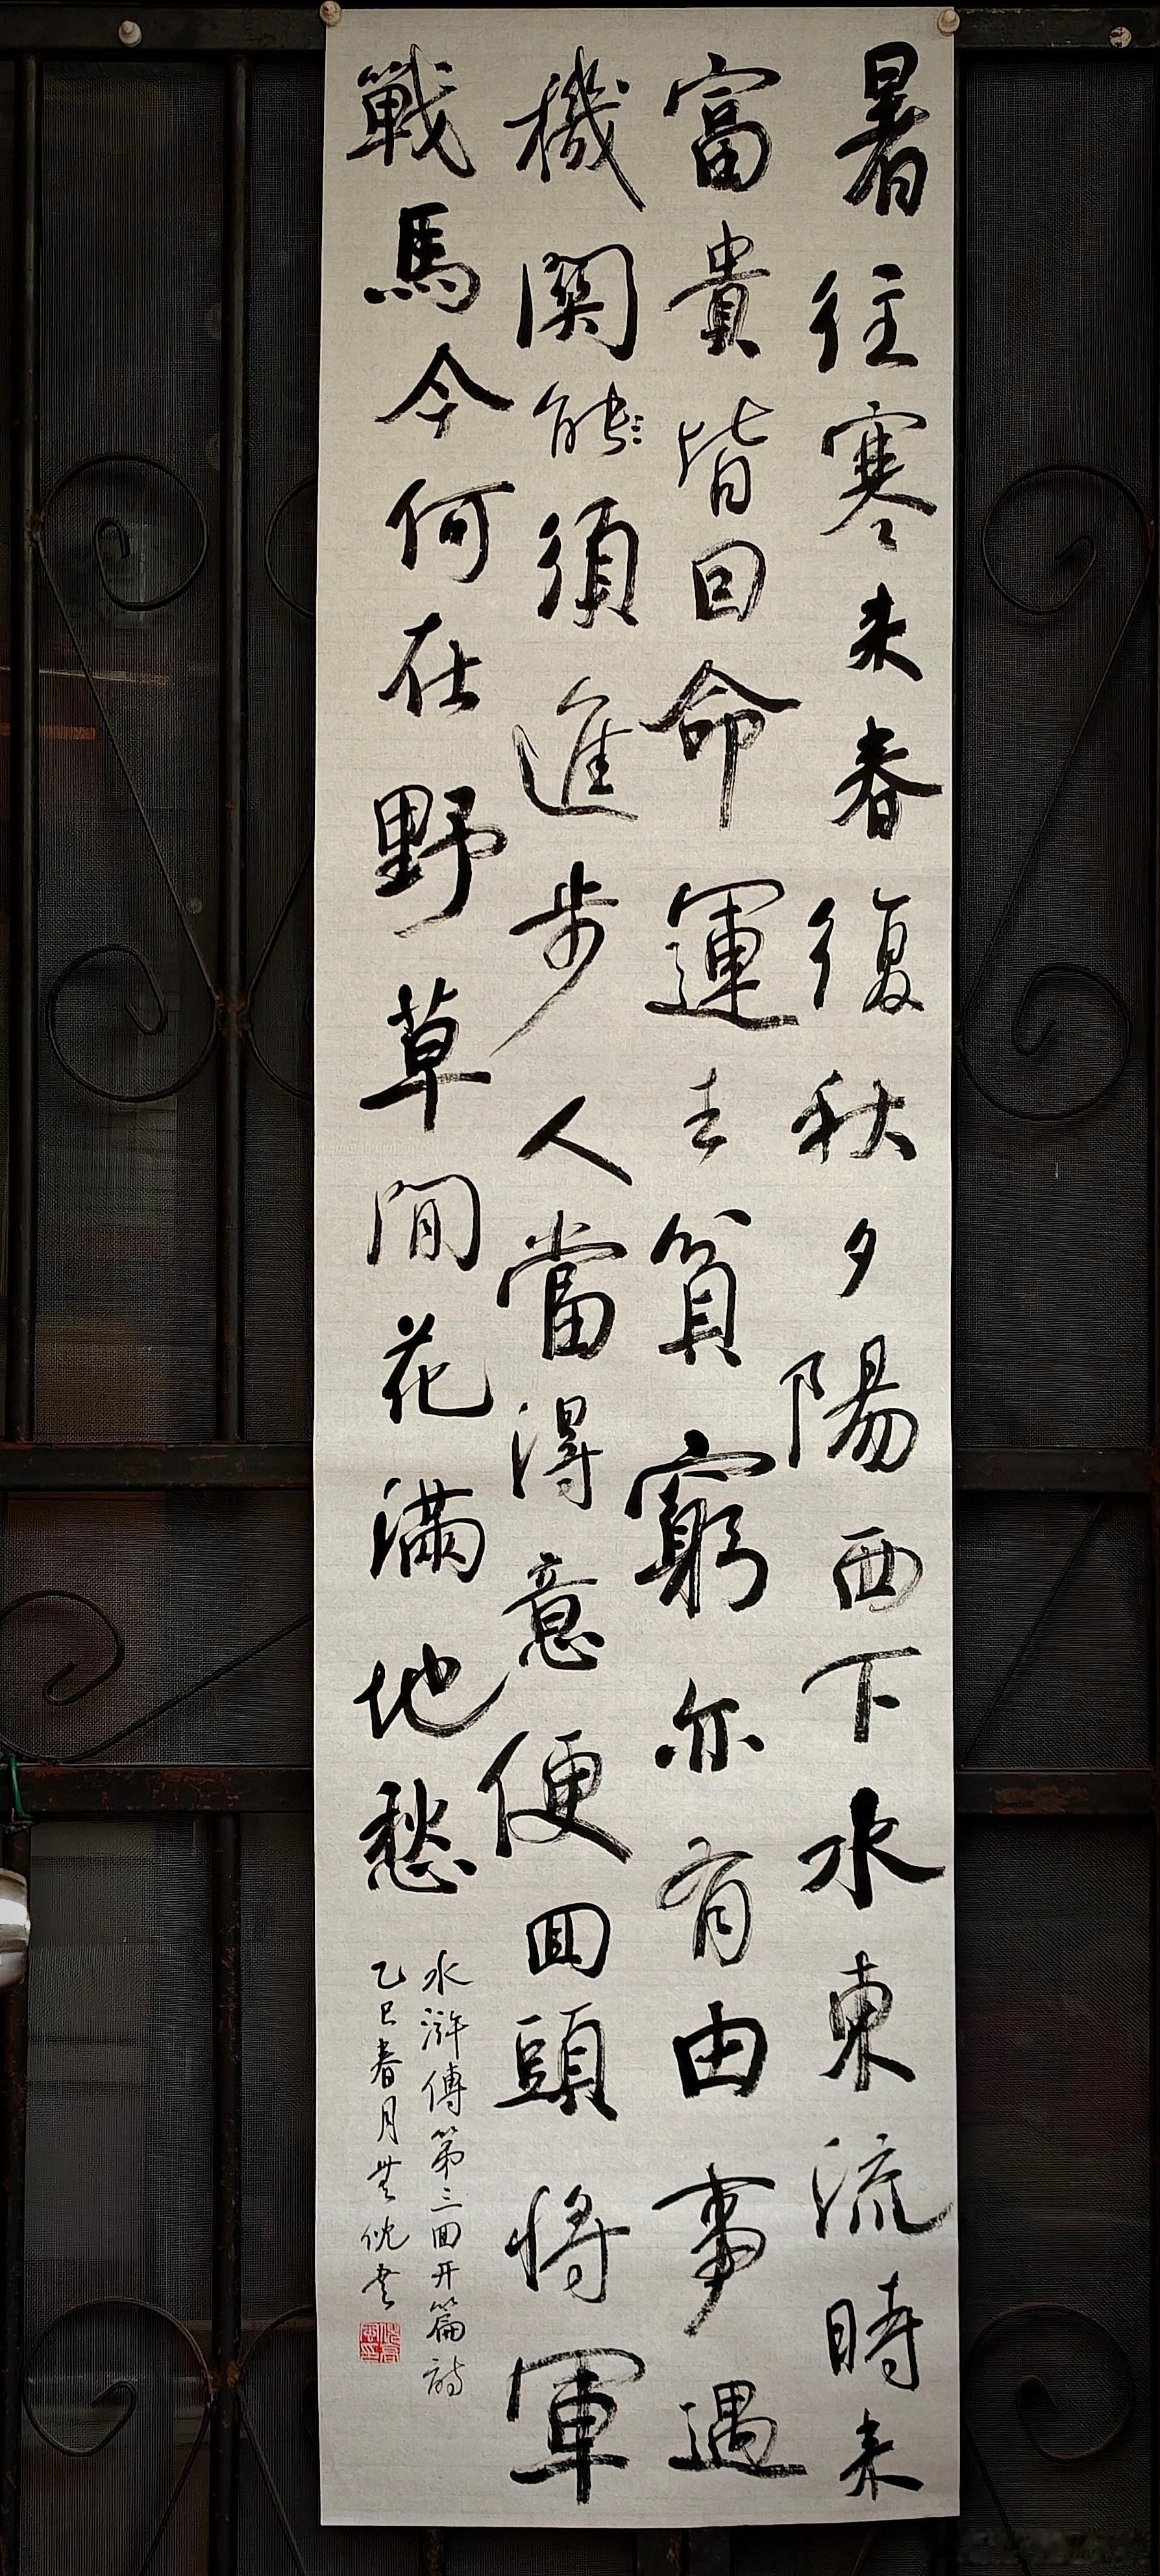 暑往寒来春復秋夕陽西下水東流時来
富貴皆回命運去貧窮亦有由事遇
機関能須進步人當得意便回頭将軍
戰馬今何在野草閒花滿地愁
水滸傳第三回开篇詩
乙巳春月